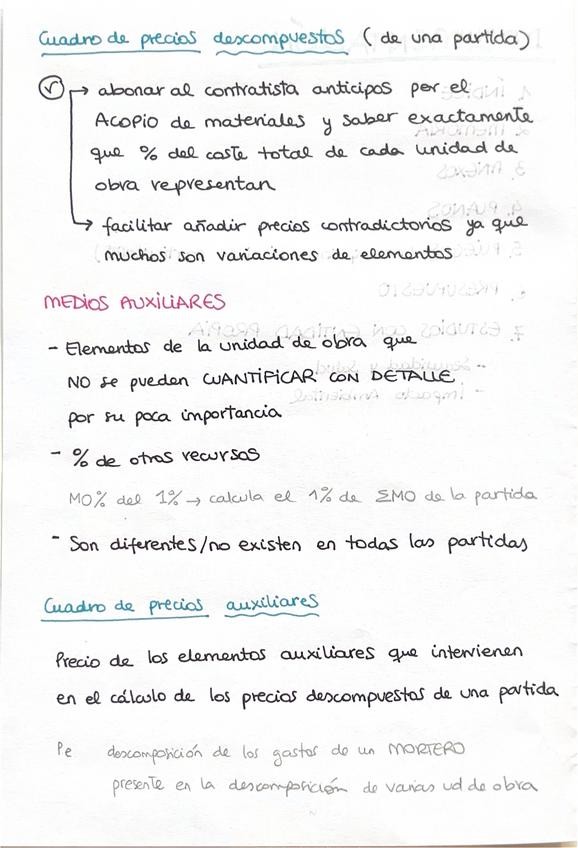 Cuadro de precios descompuestos (de una partida)
V → abonar al contratista anticipos por el
ACOPIO de materiales y saber exactamente
que % del coste total de cada unidad de
obra representan
→ facilitar añadir precios contradictorios ya que
muchos son variaciones de elementos
MEDIOS AUXILIARES
- Elementos de la unidad de obra que
NO se pueden CUANTIFICAR CON DETALLE
por su poca importancia
- % de otros recursos
MO% del 1% → calcula el 1% de ΣMO de la partida
- Son diferentes/no existen en todas las partidas
Cuadro de precios auxiliares
Precio de los elementos auxiliares que intervienen
en el cálculo de los precios descompuestos de una partida
Pe descomposición de los gastos de un MORTERO
presente en la descomposición de varias ud de obra